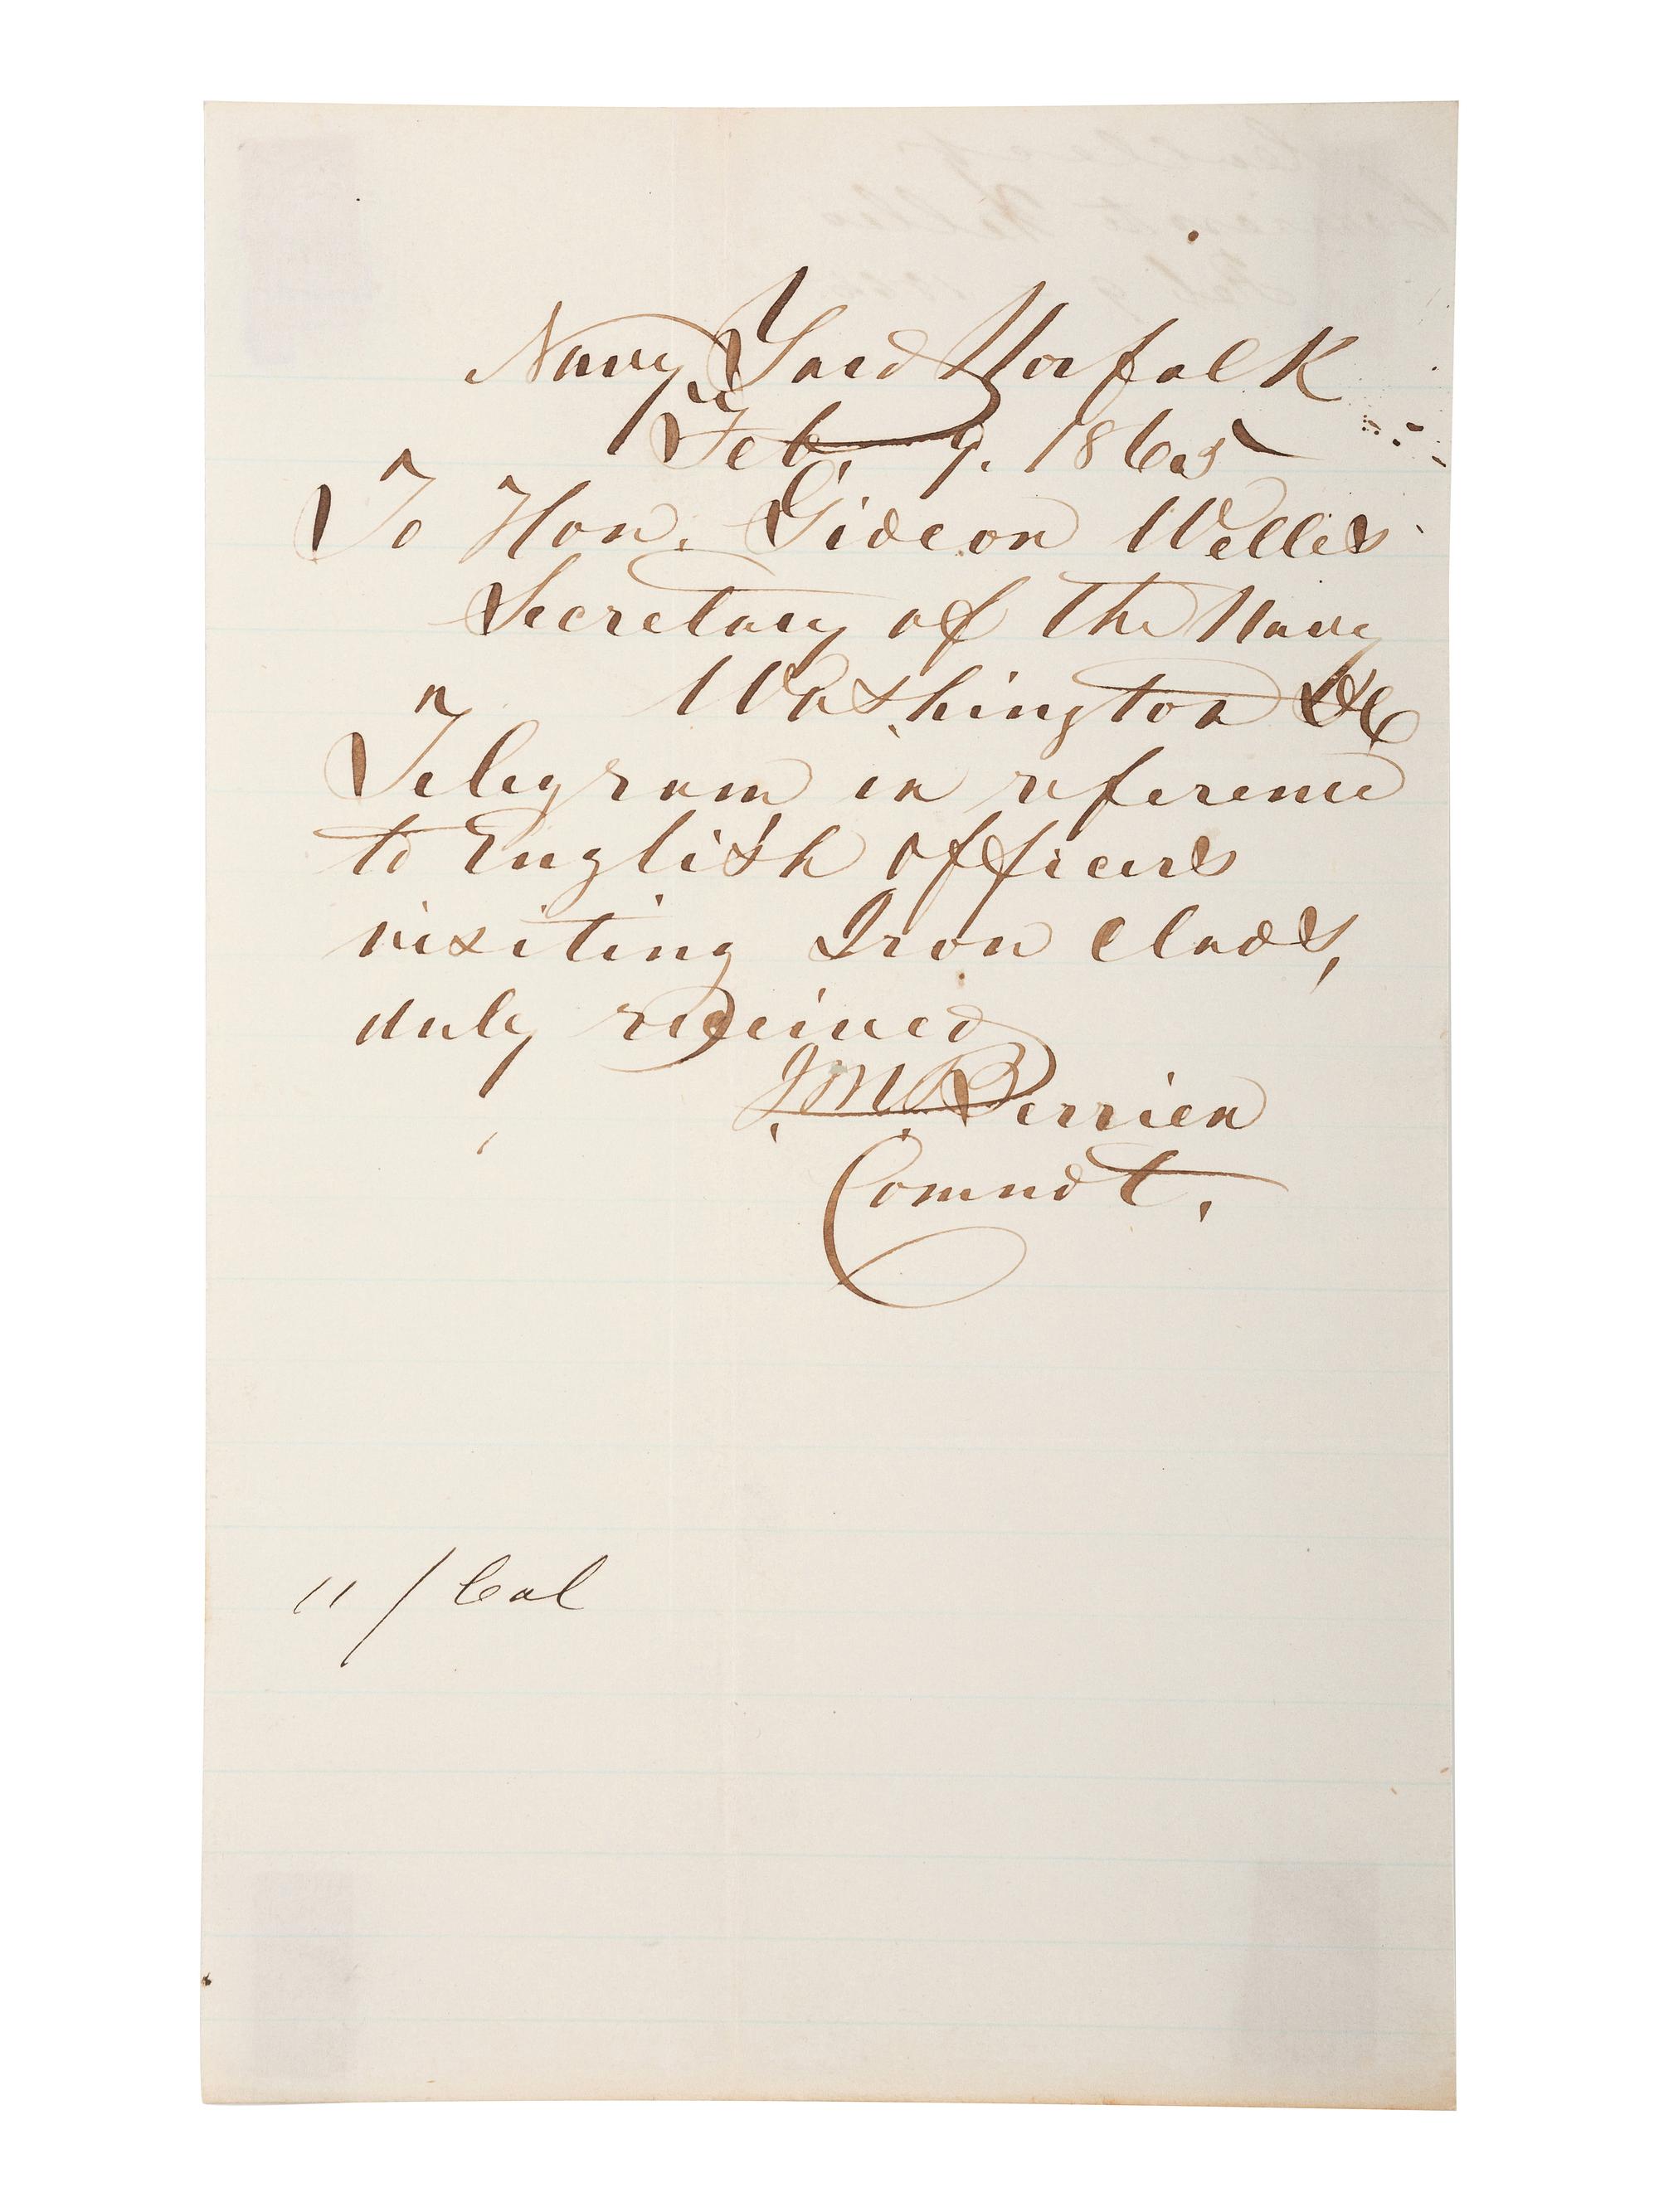 Navy Yard Norfolk
Feb. 9. 1865
To Hon. Gideon Welles
Secretary of the Navy
Washington DC
Telegram in reference
to English officers
visiting Iron Clads,
duly received
J. M. Berrien
Comndt.
11 / Col